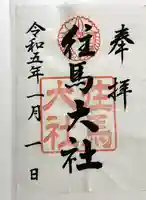 奉拝
往馬大社
令和五年一月一日
往馬
大社